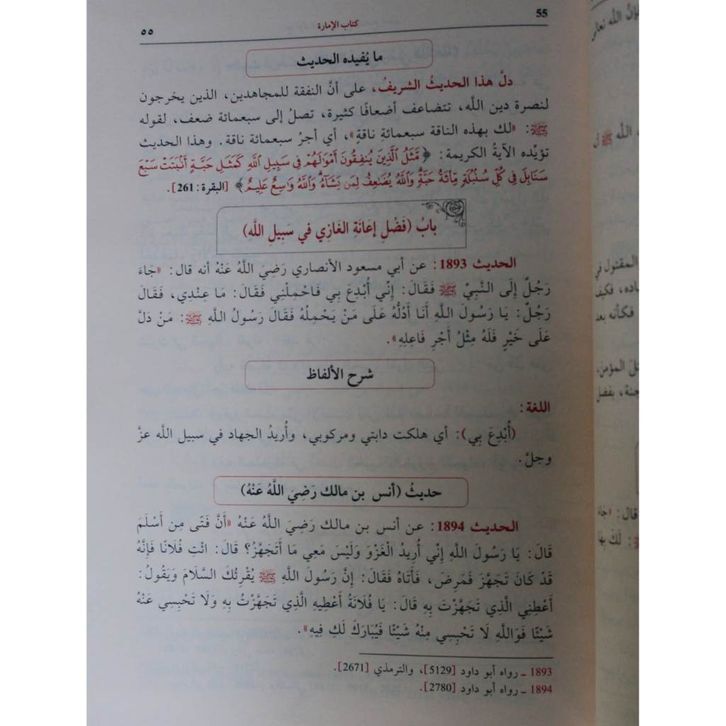 55
كتاب الإمارة
٥٥
ما يُفيده الحديث
دلَّ هذا الحديثُ الشريفُ، على أنَّ النفقة للمجاهدين، الذين يخرجون
لنصرة دين الله، تتضاعف أضعافًا كثيرة، تصلُ إلى سبعمائة ضعف، لقوله
ﷺ: «لك بهذه الناقة سبعمائة ناقةٍ»، أي أجرُ سبعمائة ناقة. وهذا الحديث
تؤيِّده الآيةُ الكريمة: ﴿مَّثَلُ ٱلَّذِينَ يُنفِقُونَ أَمْوَٰلَهُمْ فِى سَبِيلِ ٱللَّهِ كَمَثَلِ حَبَّةٍ أَنۢبَتَتْ سَبْعَ
سَنَابِلَ فِى كُلِّ سُنۢبُلَةٍ مِّا۟ئَةُ حَبَّةٍ وَٱللَّهُ يُضَٰعِفُ لِمَن يَشَآءُ وَٱللَّهُ وَٰسِعٌ عَلِيمٌ﴾ [البقرة: 261].
بابُ (فَضْلِ إعَانَةِ الغَازِي في سَبِيل اللَّه)
الحديث 1893: عن أبي مسعود الأنصاري رَضِيَ اللَّهُ عَنْهُ أنه قال: «جَاءَ
رَجُلٌ إِلَى النَّبِيِّ ﷺ فَقَالَ: إِنِّي أُبْدِعَ بِي فَاحْمِلْنِي فَقَالَ: مَا عِنْدِي، فَقَالَ
رَجُلٌ: يَا رَسُولَ اللَّهِ أَنَا أَدُلُّهُ عَلَى مَنْ يَحْمِلُهُ فَقَالَ رَسُولُ اللَّهِ ﷺ: مَنْ دَلَّ
عَلَى خَيْرٍ فَلَهُ مِثْلُ أَجْرِ فَاعِلِهِ».
شرح الألفاظ
اللغة:
(أُبْدِعَ بِي): أي هلكت دابتي ومركوبي، وأُريدُ الجهاد في سبيل الله عزَّ
وجلَّ.
حديثُ (أنس بن مالك رَضِيَ اللَّهُ عَنْهُ)
الحديث 1894: عن أنس بن مالك رَضِيَ اللَّهُ عَنْهُ «أَنَّ فَتًى مِن أَسْلَمَ
قَالَ: يَا رَسُولَ اللَّهِ إِنِّي أُرِيدُ الْغَزْوَ وَلَيْسَ مَعِي مَا أَتَجَهَّزُ؟ قَالَ: ائْتِ فُلَانًا فَإِنَّهُ
قَدْ كَانَ تَجَهَّزَ فَمَرِضَ، فَأَتَاهُ فَقَالَ: إِنَّ رَسُولَ اللَّهِ ﷺ يُقْرِئُكَ السَّلَامَ وَيَقُولُ:
أَعْطِنِي الَّذِي تَجَهَّزْتَ بِهِ قَالَ: يَا فُلَانَةُ أَعْطِيهِ الَّذِي تَجَهَّزْتُ بِهِ وَلَا تَحْبِسِي عَنْهُ
شَيْئًا فَوَاللَّهِ لَا تَحْبِسِي مِنْهُ شَيْئًا فَيُبَارَكَ لَكِ فِيهِ».
1893 ـ رواه أبو داود [5129]، والترمذي [2671].
1894 ـ رواه أبو داود [2780].